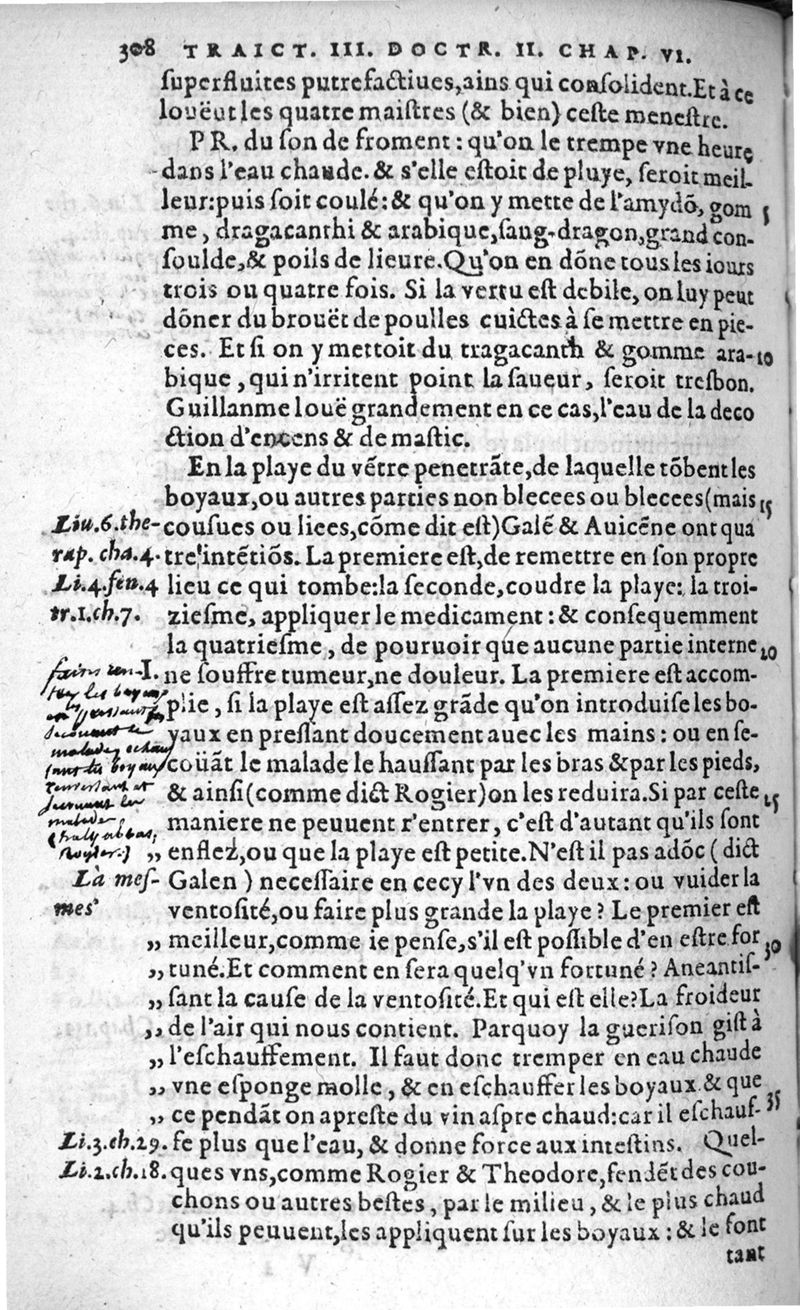 308 TRAICT. III. DOCTR. II. CHAP. VI.
ſuperfluites putrefactiues,ains qui conſolident.Et à ce
louëut les quatre maiſtres (& bien) ceſte meneſtre.
PR. du ſon de froment : qu'on le trempe vne heure
dans l'eau chaude. & s'elle eſtoit de pluye, ſeroit meil-
leur:puis ſoit coulé: & qu'on y mette de l'amydõ, gom 5
me, dragacanthi & arabique,ſang-dragon,grand con-
ſoulde,& poils de lieure.Qu'on en dõne tous les iours
trois ou quatre fois. Si la vertu eſt debile, on luy peut
dõner du brouët de poulles cuictes à ſe mettre en pie-
ces. Et ſi on y mettoit du tragacanth & gomme ara- 10
bique , qui n'irritent point la ſaueur, ſeroit treſbon.
Guillanme louë grandement en ce cas,l'eau de la deco
ction d'encens & de maſtic.
En la playe du vẽtre penetrãte,de laquelle tõbent les
boyaux,ou autres parties non blecees ou blecees(mais 15
Liu.6.the- couſues ou liees,cõme dit eſt)Galẽ & Auicẽne ont qua
rap. cha.4. tre intẽtiõs. La premiere eſt,de remettre en ſon propre
Li.4.fen.4 lieu ce qui tombe:la ſeconde,coudre la playe: la troi-
tr.1.ch.7. zieſme, appliquer le medicament : & conſequemment
la quatrieſme , de pouruoir que aucune partie interne 20
I. ne ſouffre tumeur,ne douleur. La premiere eſt accom-
plie, ſi la playe eſt aſſez grãde qu'on introduiſe les bo-
yaux en preſſant doucement auec les mains : ou en ſe-
coüãt le malade le hauſſant par les bras & par les pieds,
& ainſi(comme dict Rogier)on les reduira.Si par ceſte 25
malades maniere ne peuuent r'entrer, c'eſt d'autant qu'ils ſont
„ enflez,ou que la playe eſt petite.N'eſt il pas adõc ( dict
Là meſ- Galen ) neceſſaire en cecy l'vn des deux : ou vuider la
mes ventoſité,ou faire plus grande la playe ? Le premier eſt
„ meilleur,comme ie penſe,s'il eſt poſſible d'en eſtre for 30
„ tuné.Et comment en ſera quelq'vn fortuné ? Aneantiſ-
„ ſant la cauſe de la ventoſité.Et qui eſt elle?La froideur
„ de l'air qui nous contient. Parquoy la gueriſon giſt à
„ l'eſchauffement. Il faut donc tremper en eau chaude
„ vne eſponge molle , & en eſchauffer les boyaux & que
„ ce pendãt on apreſte du vin aſpre chaud:car il eſchauf- 35
Li.3.ch.29. fe plus que l'eau, & donne force aux inteſtins. Quel-
Li.2.ch.18. ques vns,comme Rogier & Theodore,fendẽt des cou-
chons ou autres beſtes , par le milieu , & le plus chaud
qu'ils peuuent,les appliquent ſur les boyaux : & le font
tant